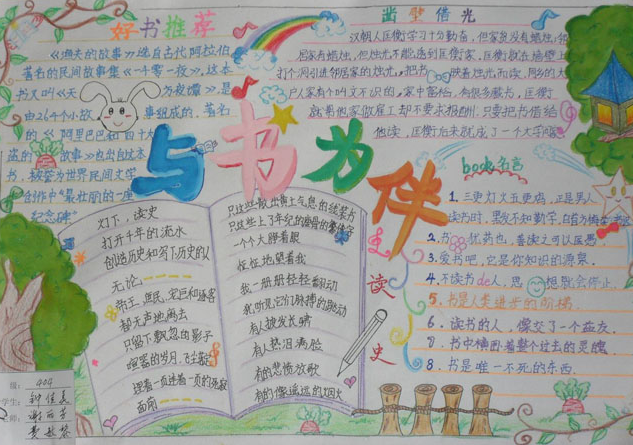 好书推荐
《渔夫的故事》选自古代阿拉伯
著名的民间故事集《一千零一夜》,这本
书又叫《天方夜谭》,是
由264个小故事组成的,著名
的《阿里巴巴和四十大
盗的故事》也出自这本
书,被誉为世界民间文学
创作中"最壮丽的一座
纪念碑"
凿壁借光
汉朝人匡衡学习十分勤奋,但家贫没有蜡烛,邻
居家有蜡烛,但烛光不能透到匡衡家,匡衡就在墙壁上
打个洞引进邻居家的烛光,把书映着烛光而读,同乡的大
户人家有个叫文不识的,家中富裕,有很多藏书,匡衡
就为他家做雇工却不要求报酬,只要把书借给
他读,匡衡后来就成了一个大学者
与书为伴
灯下,读史
打开千年的流水
创造历史和写下历史的人
无论
帝王、庶民、宠臣和逐客
都无声地离去
只留下飘忽的影子
喧嚣的岁月,飞尘散尽
踩着一页连着一页的死寂
面前
只这些散出黄土气息的线装书
只这些上了年纪的瘦骨的繁体字
一个个大睁着眼
怔怔地望着我
我一册册轻轻翻动
我听见它们脉搏的跳动
有人披发长啸
有人热泪满脸
有的悲愤放歌
有的像遥远的烟火
读史
book名言
1.三更灯火五更鸡,正是男人
读书时,黑发不知勤学早,白首方悔
2.书犹药也,善读之可以医愚
3.爱书吧,它是你知识的源泉.
4.不读书de人,思想就会停止.
5.书是人类进步的阶梯.
6.读书的人,像交了一个益友.
7.书中横卧着整个过去的灵魂
8.书是唯一不死的东西.
404